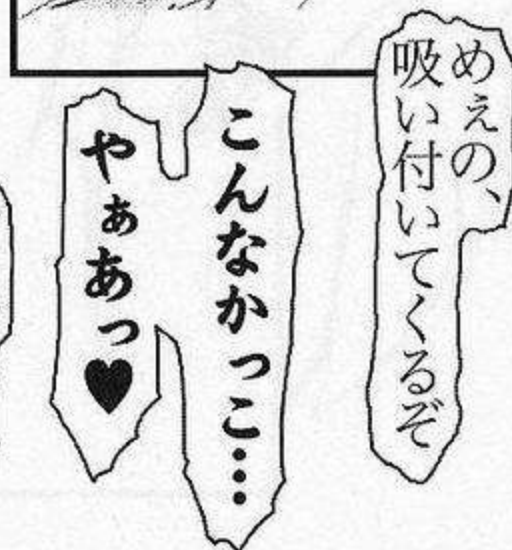 めぇの、
吸い付いてくるぞ
こんなかっこ…
やぁあっ♥